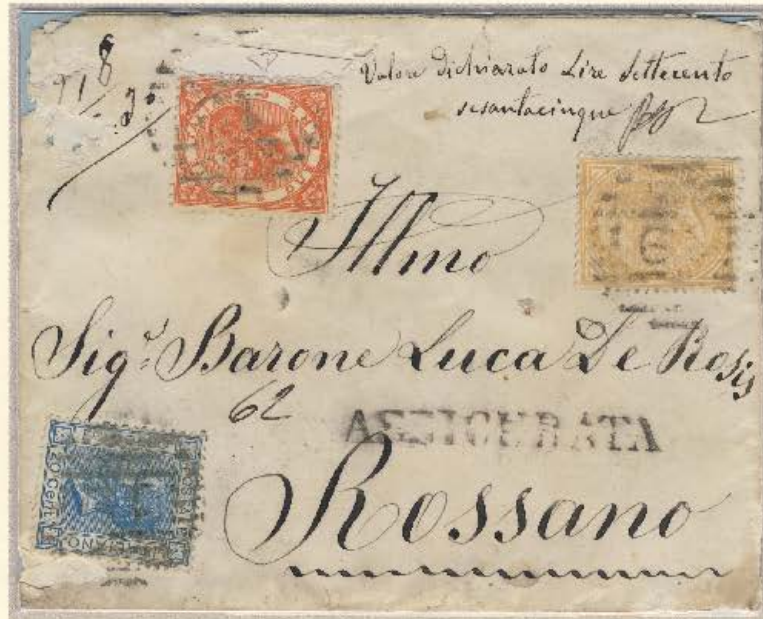 8
Valore dichiarato Lire Settecento
sesantacinque
Illmo
Sigr Barone Luca De Rosis
62
ASSICURATA
Rossano
20 CENT